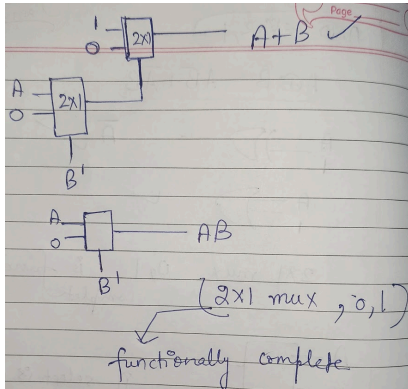 Page
1
0
2x1
A+B ✓
A
0
2x1
B'
A
0
AB
B'
(2x1 mux, 0, 1)
functionally complete